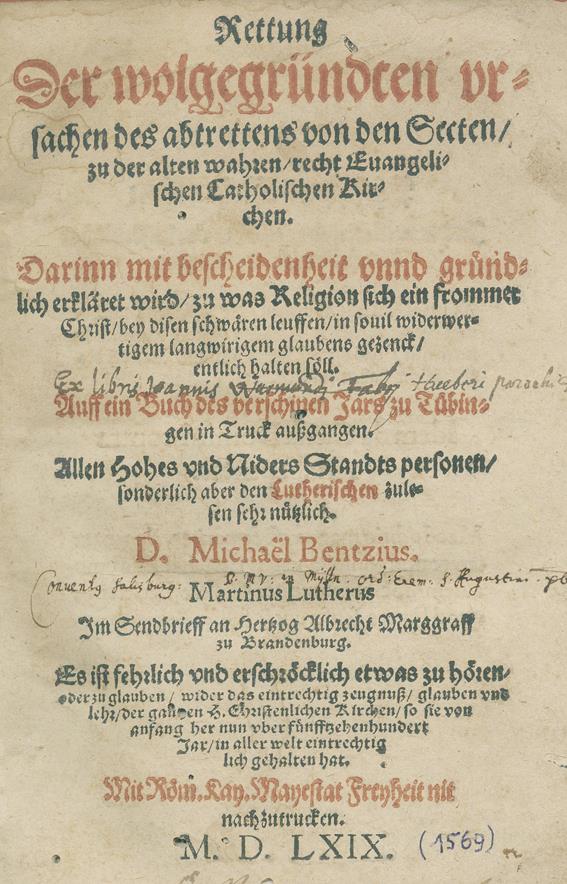 Rettung
Der wolgegründten vr-
sachen des abtrettens von den Secten/
zu der alten wahren/recht Euangeli-
schen Catholischen Kir-
chen.
Darinn mit bescheidenheit vnnd gründ-
lich erkläret wird/zu was Religion sich ein frommer
Christ/bey disen schwären leuffen/in souil widerwer-
tigem langwirigem glaubens gezenck/
entlich halten söll.
Ex libris Joannis
Auff ein Buch des verschinen Jars zu Tübin-
gen in Truck außgangen.
Allen Hohes vnd Niders Standts personen/
sonderlich aber den Lutherischen zule-
sen sehr nützlich.
D. Michaël Bentzius.
Conventus Salisburg: ord: Erem: S. Augustini
Martinus Lutherus
Im Sendbrieff an Hertzog Albrecht Marggraff
zu Brandenburg.
Es ist fehrlich vnd erschröcklich etwas zu hören
oder zu glauben / wider das eintrechtig zeugnuß/ glauben vnd
lehr/der gantzen H. Christenlichen Kirchen/so sie von
anfang her nun vber fünfftzehenhundert
Jar/in aller welt eintrechtig
lich gehalten hat.
Mit Röm. Kay. Mayestat Freyheit nit
nachzutrucken.
M. D. LXIX. (1569)